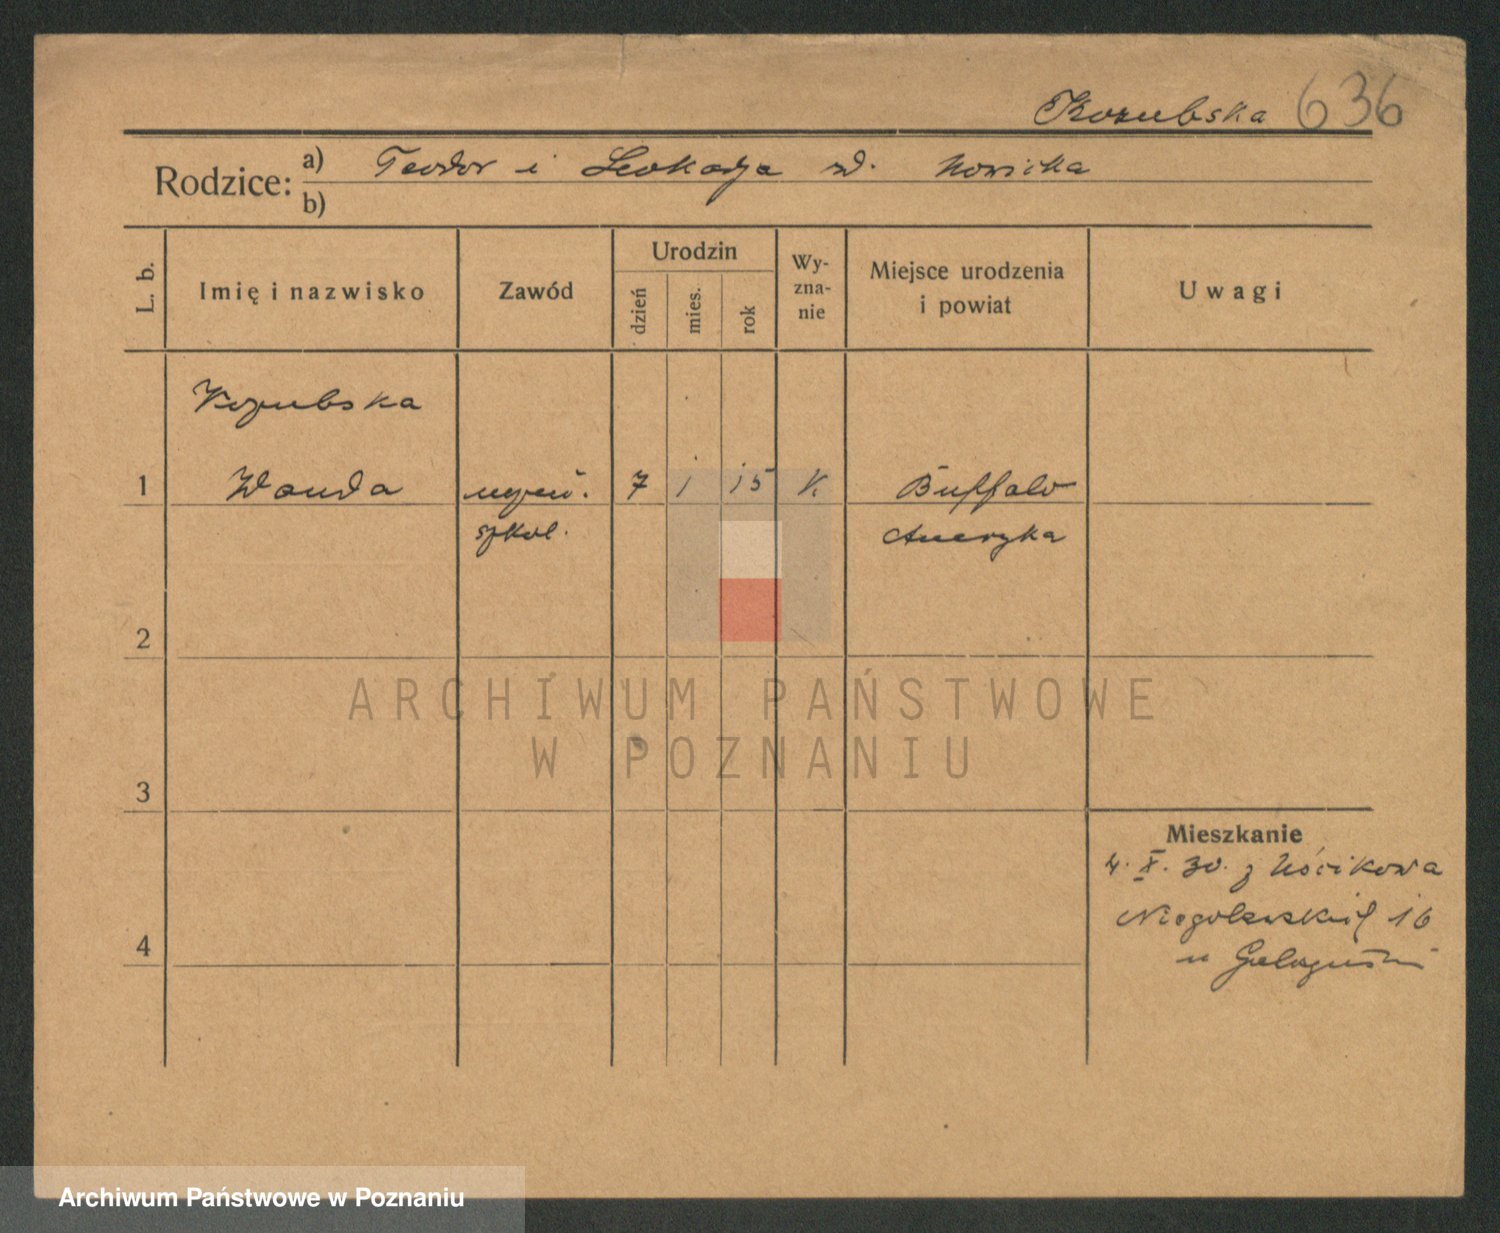 Kozubska 636
Rodzice: a) Teodor i Leokadja zd. Nowicka
b)
L. b.
Imię i nazwisko
Zawód
Urodzin
dzień
mies.
rok
Wy-
zna-
nie
Miejsce urodzenia
i powiat
Uwagi
Kozubska
1 Wanda uczen. 7 1 15 K. Buffalo
szkol. Ameryka
2
3
4
Mieszkanie
4. X. 30. z Uścikowa
Niegolewskich 16
u
ARCHIWUM PAŃSTWOWE
W POZNANIU
Archiwum Państwowe w Poznaniu